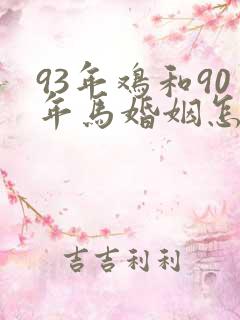 93年鸡和90
年馬婚姻怎
吉吉利利